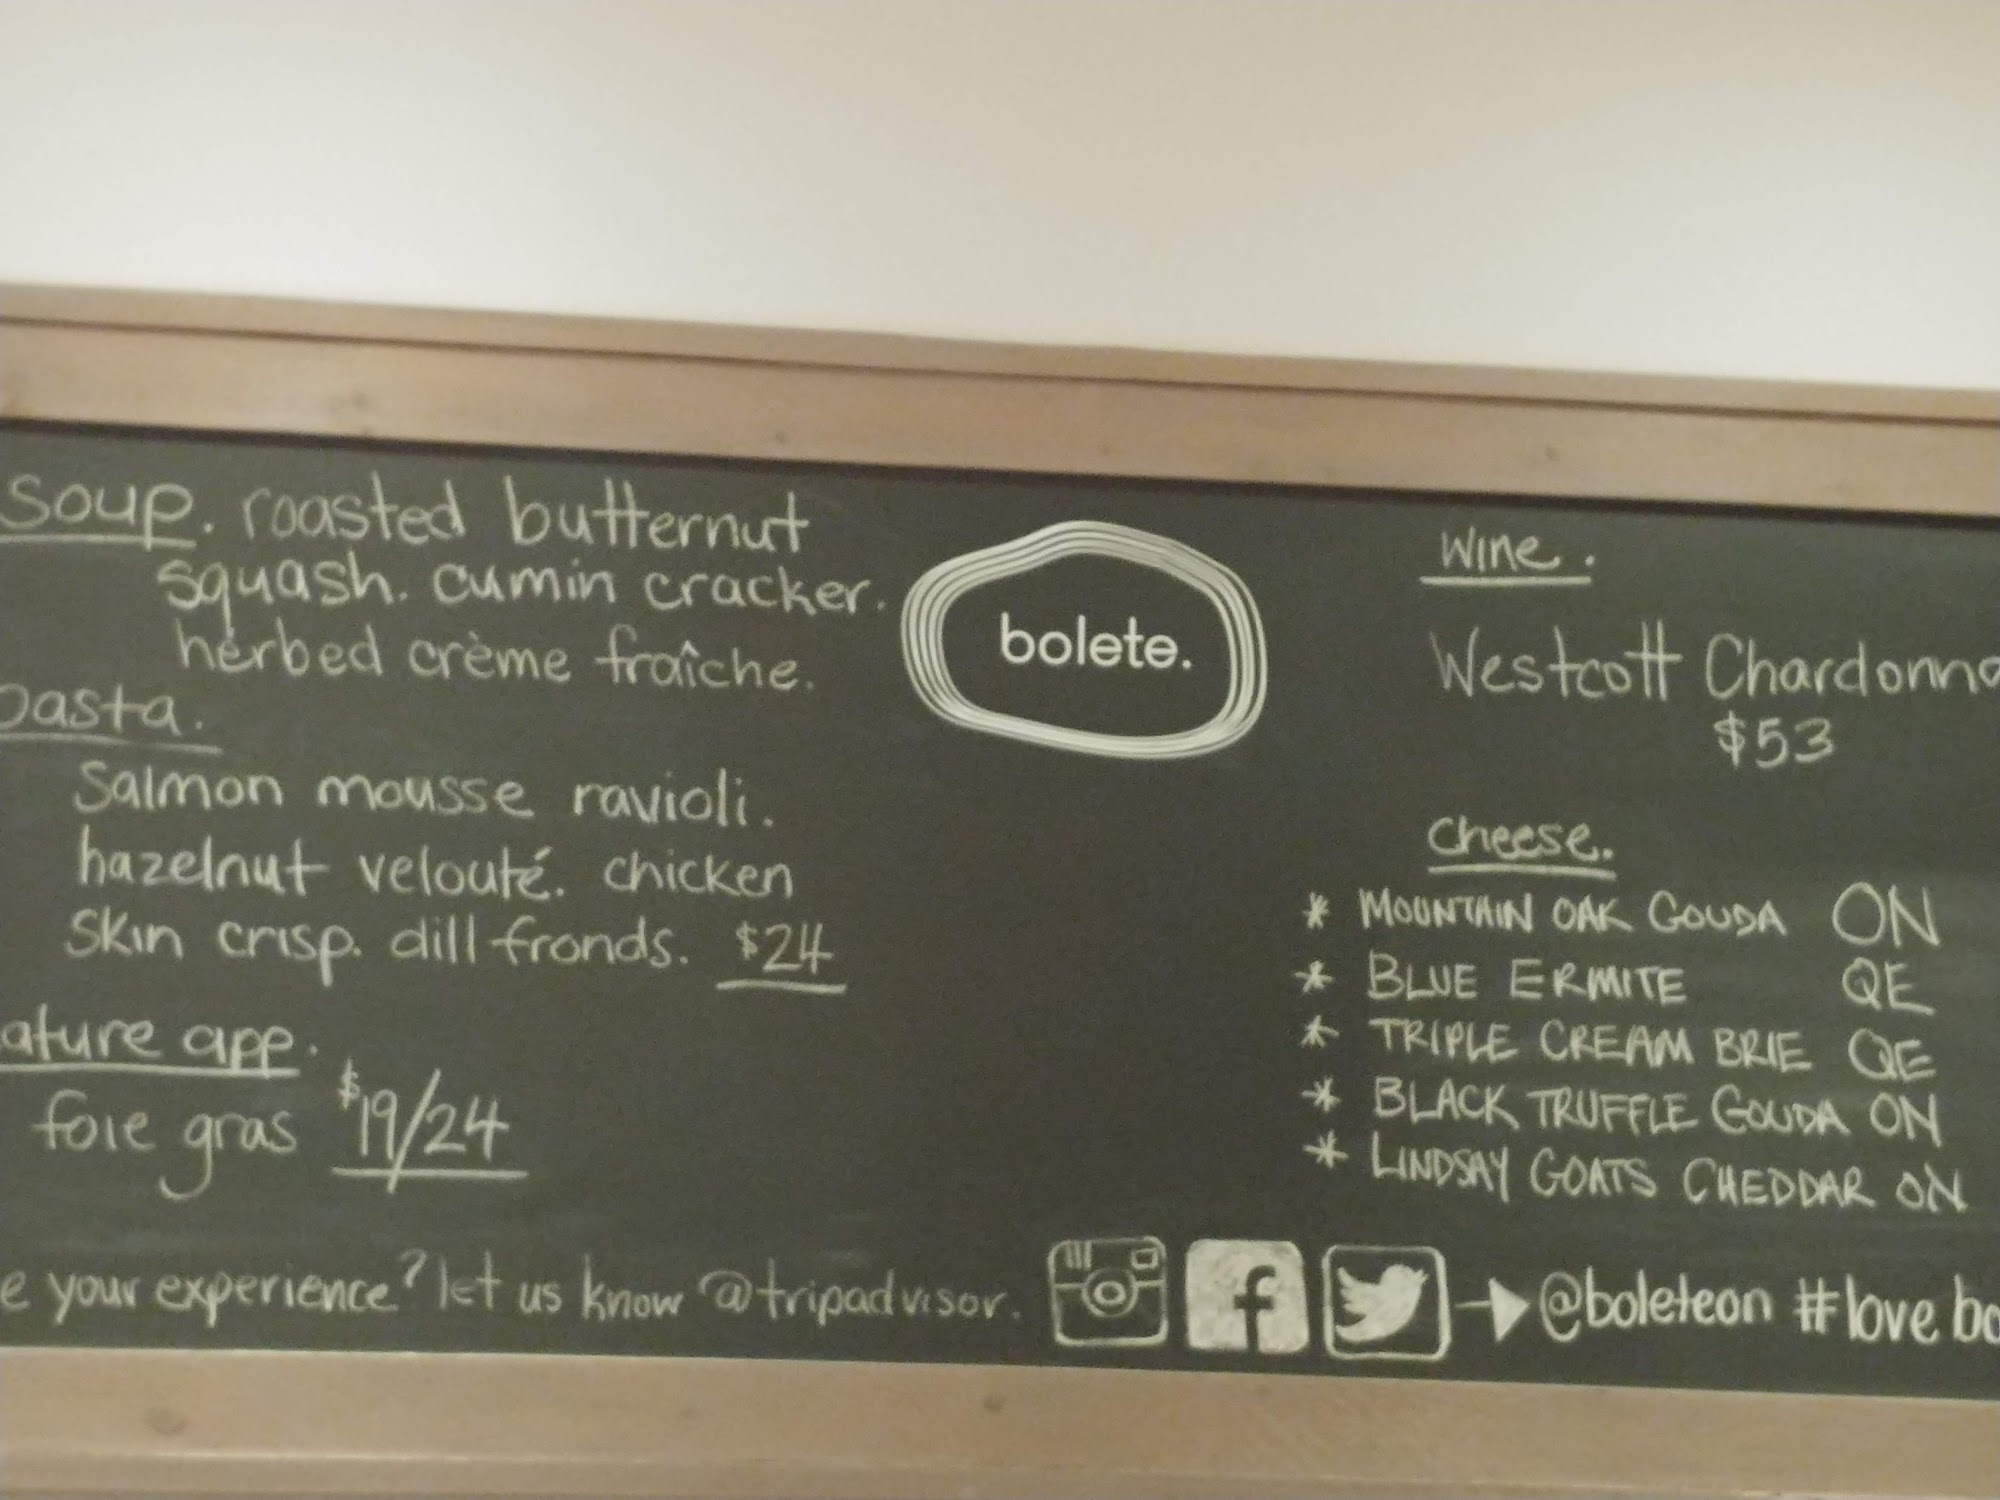 soup. roasted butternut
squash. cumin cracker.
herbed crème fraîche.
pasta.
Salmon mousse ravioli.
hazelnut velouté. chicken
skin crisp. dill fronds. $24
ature app.
foie gras $19/24
e your experience? let us know @tripadvisor.
bolete.
wine.
Westcott Chardonna
$53
cheese.
* MOUNTAIN OAK GOUDA ON
* BLUE ERMITE QE
* TRIPLE CREAM BRIE QE
* BLACK TRUFFLE GOUDA ON
* LINDSAY GOATS CHEDDAR ON
f → @boleteon #love bo